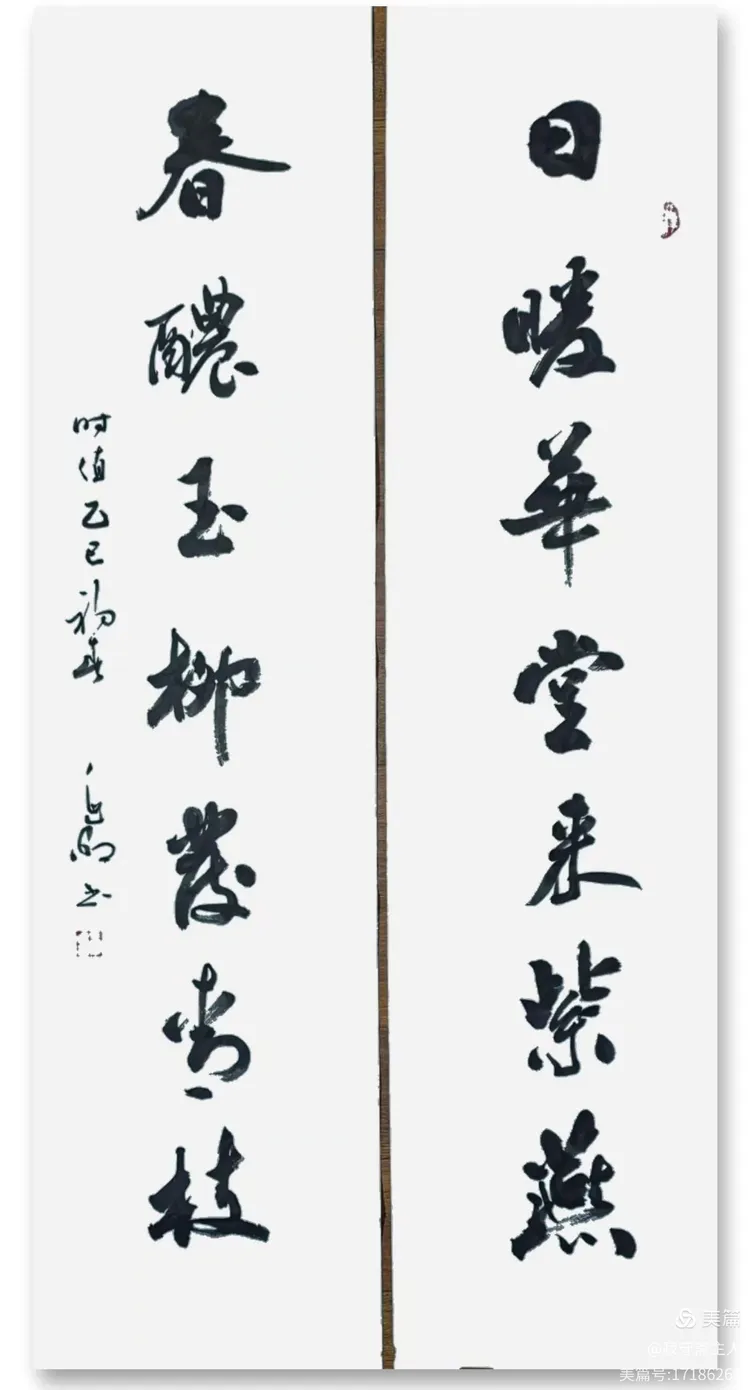 日暖華堂来紫燕
春醲玉柳發青枝
时值乙巳初春
书
美篇
主人
美篇号:1718626